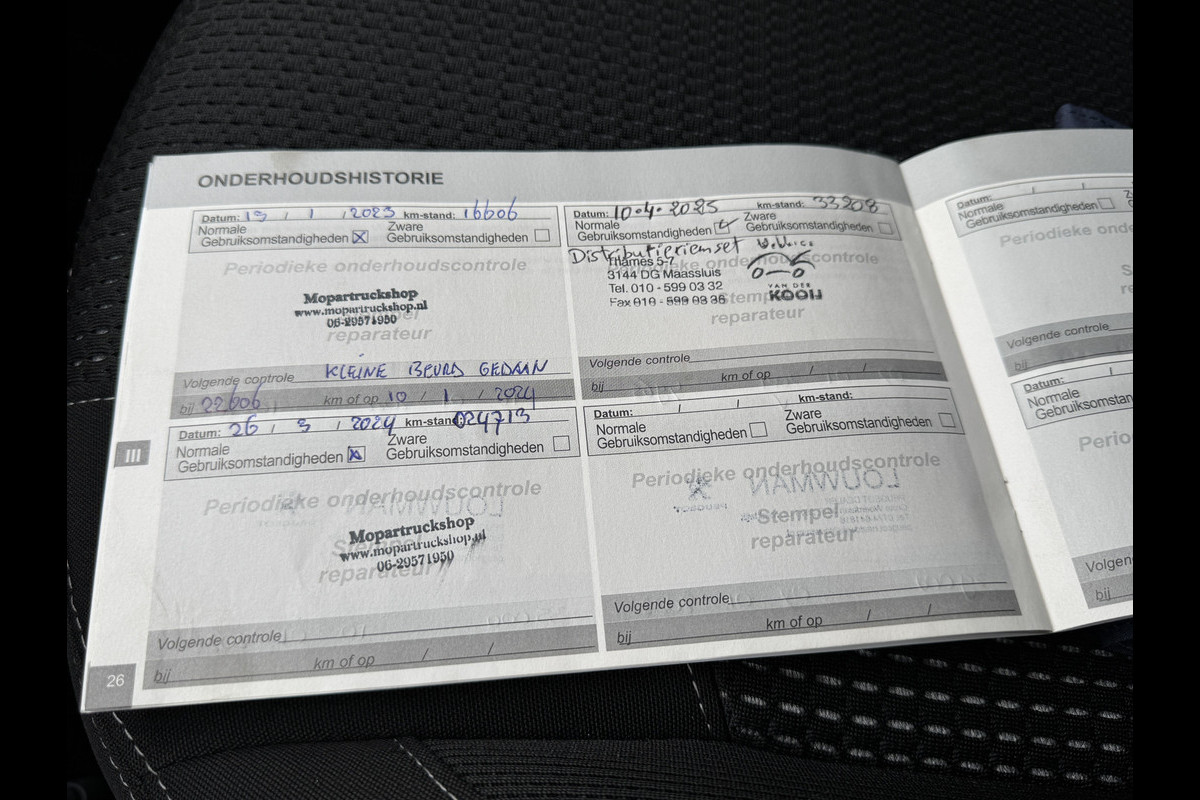 ONDERHOUDSHISTORIE
Datum: 19 / 1 / 2023 km-stand: 16606
Normale
Gebruiksomstandigheden
Zware
Gebruiksomstandigheden
Periodieke onderhoudscontrole
Mopartruckshop
www.mopartruckshop.nl
06-29571950
reparateur
KLEINE BEURD GEDAAN
Volgende controle
bij 22606 km of op 10 / 1 / 2024
Datum: 26 / 3 / 2024 km-stand: 024713
Normale
Gebruiksomstandigheden
Zware
Gebruiksomstandigheden
Periodieke onderhoudscontrole
Mopartruckshop
Stempel
www.mopartruckshop.nl
06-29571950
reparateur
Volgende controle
bij km of op / /
III
26
Datum: 10-4-2025 km-stand: 33208
Normale
Gebruiksomstandigheden
Zware
Gebruiksomstandigheden
Distributieriemset
Periodieke onderhoudscontrole
Thames 5-7
3144 DG Maassluis
Tel. 010 - 599 03 32
Fax 010 - 599 03 36
VAN DER
KOOIJ
Stempel
reparateur
Volgende controle
bij km of op / /
Datum: / / km-stand:
Normale
Gebruiksomstandigheden
Zware
Gebruiksomstandigheden
Periodieke onderhoudscontrole
LOUWMAN
PEUGEOT
Stempel
reparateur
Volgende controle
bij km of op / /
Datum: / /
Normale
Gebruiksomstandigheden
Periodieke onde
Volgende controle
bij
Datum: /
Normale
Gebruiksomstan
Perio
Volgen
bij